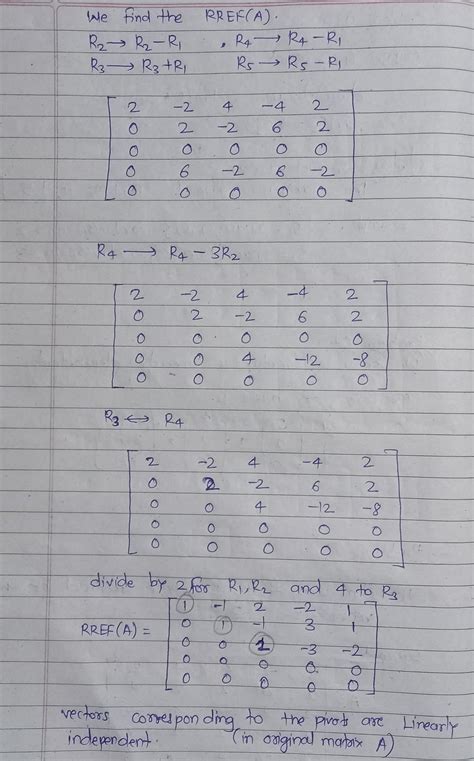 We find the RREF(A).
R2 → R2 - R1 , R4 → R4 - R1
R3 → R3 + R1 R5 → R5 - R1
2 -2 4 -4 2
0 2 -2 6 2
0 0 0 0 0
0 6 -2 6 -2
0 0 0 0 0
R4 → R4 - 3R2
2 -2 4 -4 2
0 2 -2 6 2
0 0 0 0 0
0 0 4 -12 -8
0 0 0 0 0
R3 ↔ R4
2 -2 4 -4 2
0 2 -2 6 2
0 0 4 -12 -8
0 0 0 0 0
0 0 0 0 0
divide by 2 for R1, R2 and 4 to R3
1 -1 2 -2 1
RREF(A) = 0 1 -1 3 1
0 0 1 -3 -2
0 0 0 0 0
0 0 0 0 0
vectors corresponding to the pivots are Linearly
independent. (in original matrix A)